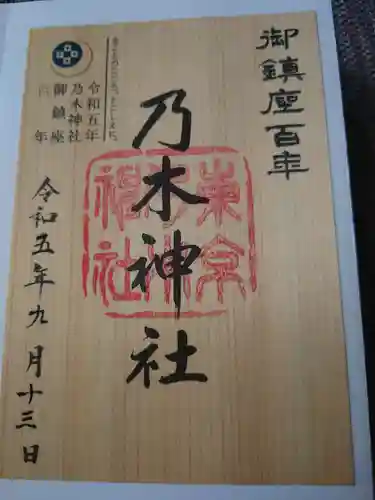 御鎮座百年
乃木神社
東京
乃木
神社
令和五年
乃木神社
御鎮座
百年
令和五年九月十三日